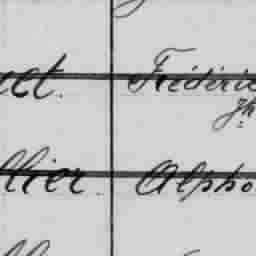 let. Frédéric
Jh
llier. Alpho